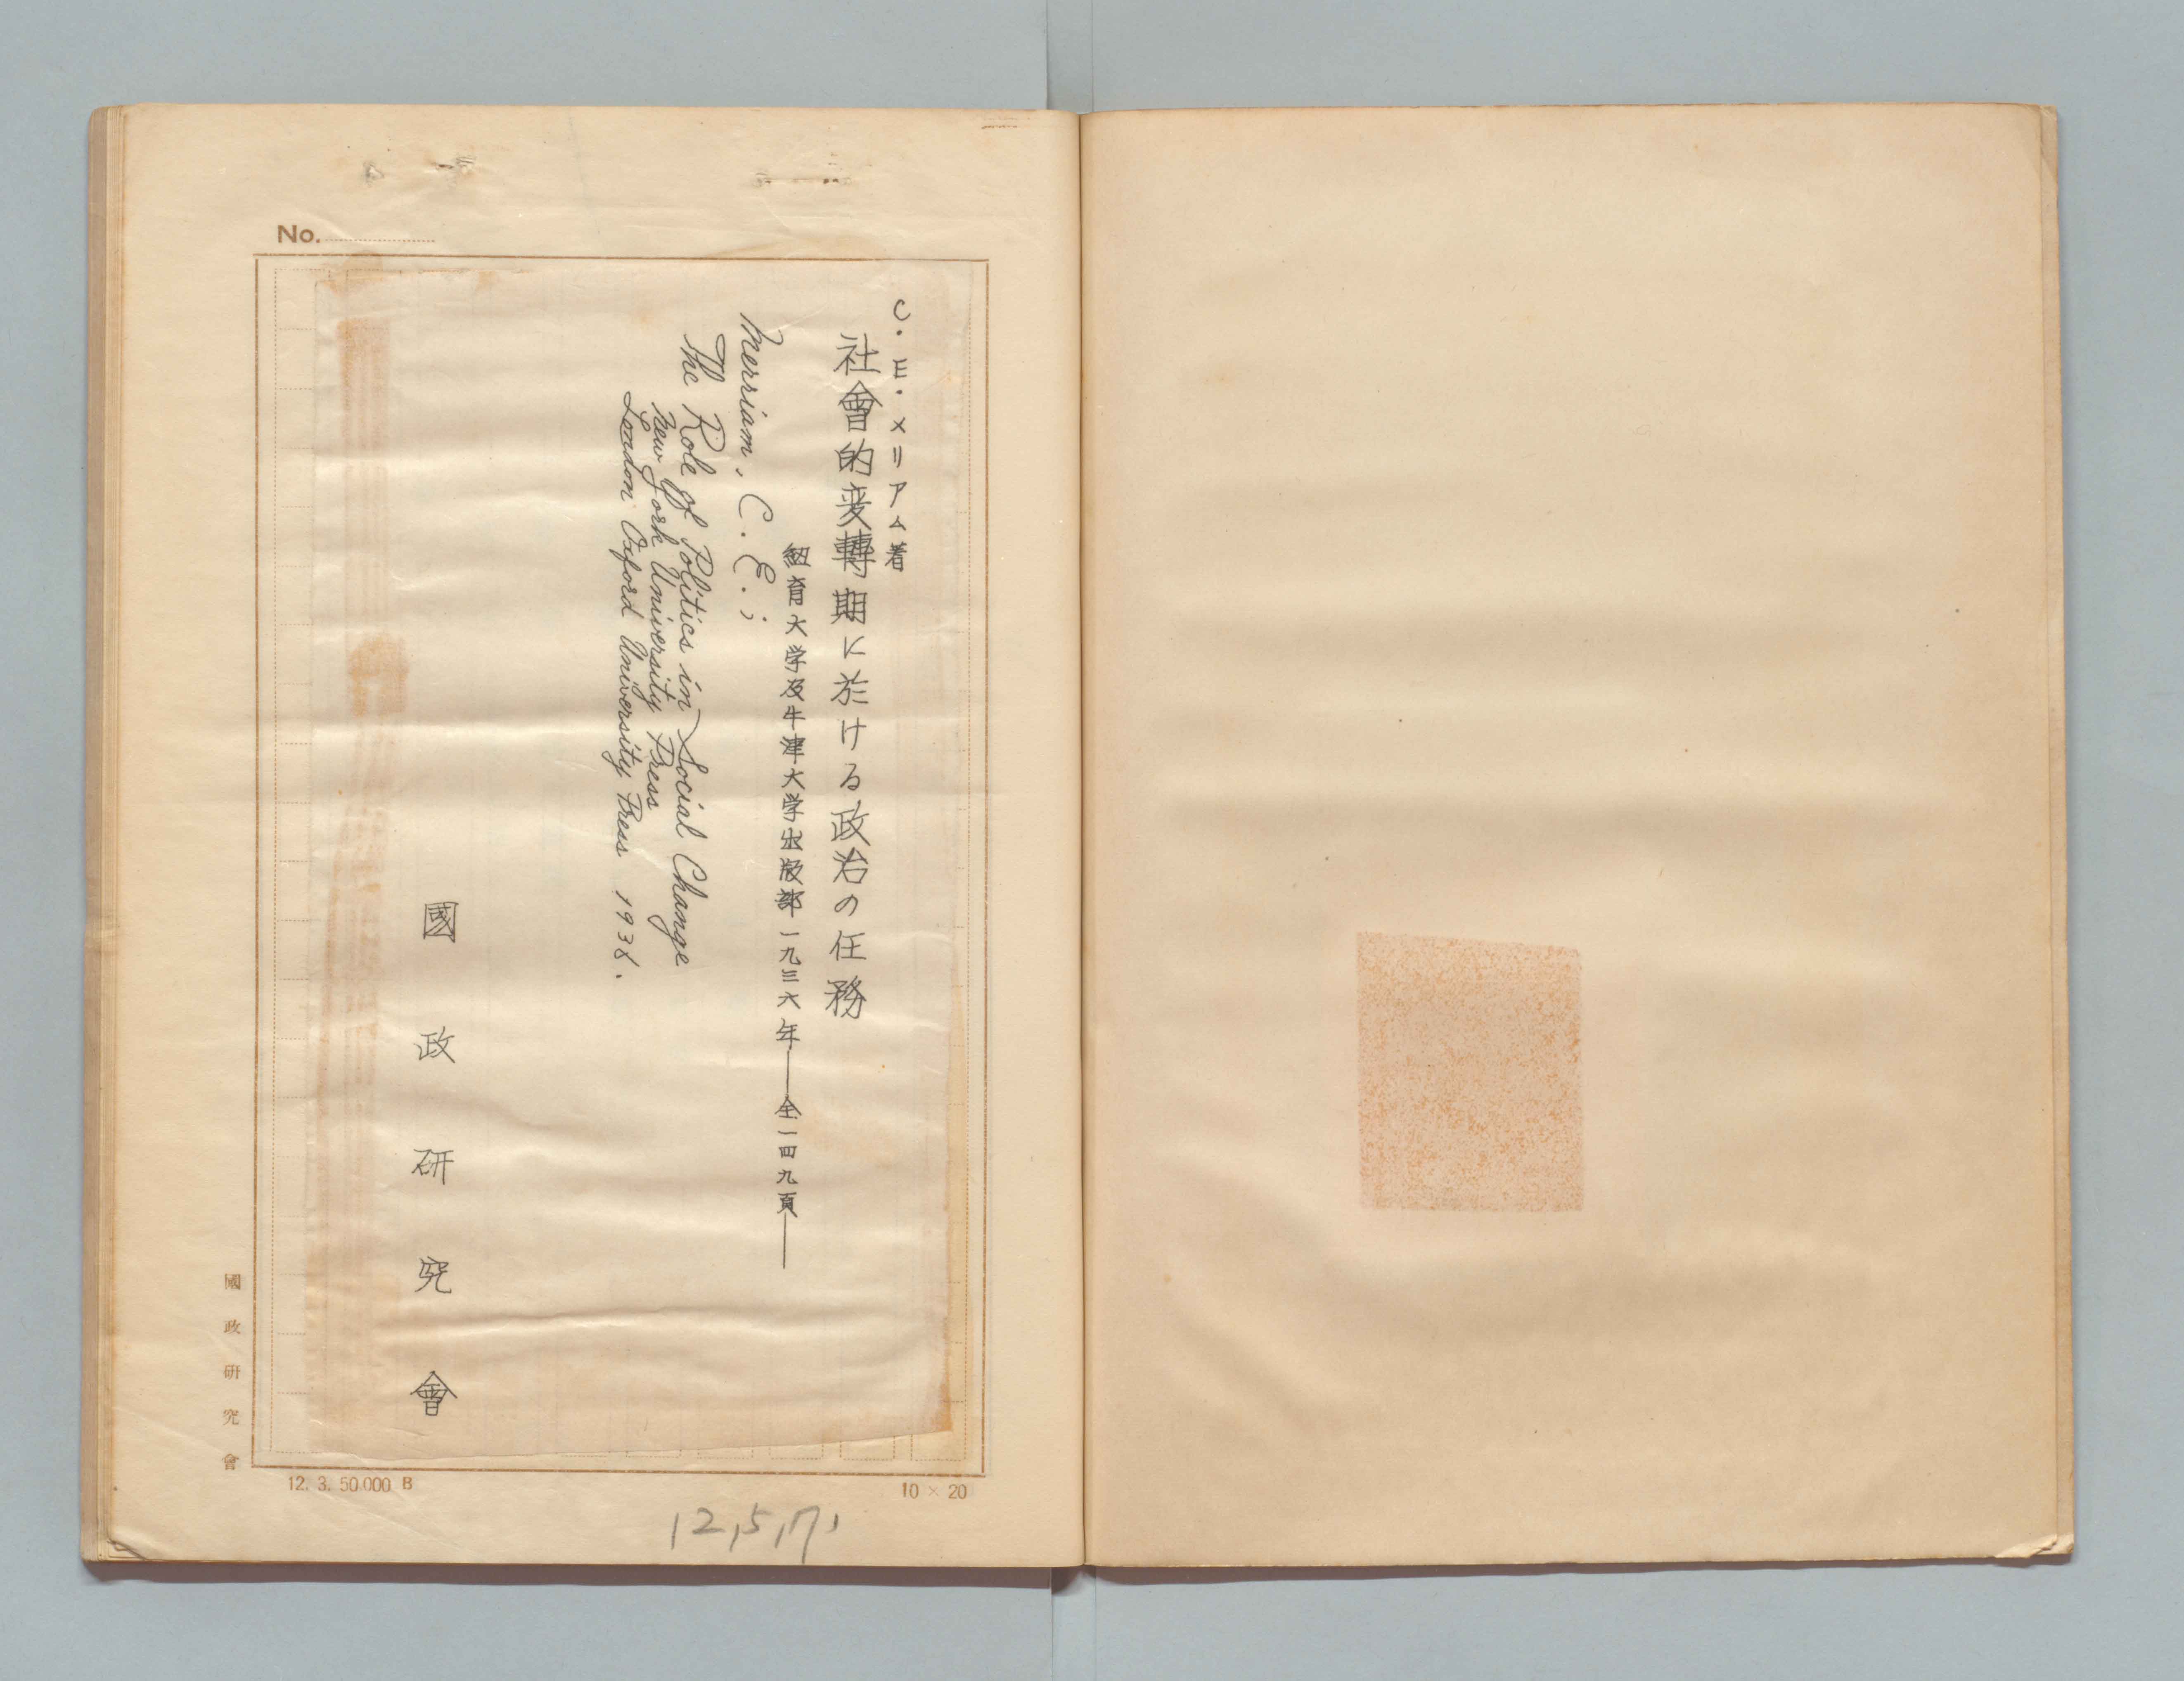 No.
C・E・メリアム著
社會的変轉期に於ける政治の任務
紐育大学及牛津大学出版部一九三六年——全一四九頁——
Merriam, C. E.;
The Role of Politics in Social Change
New York University Press
London Oxford University Press 1936.
國政研究會
國政研究會
12. 3. 50.000 B
10 × 20
12,5,17,